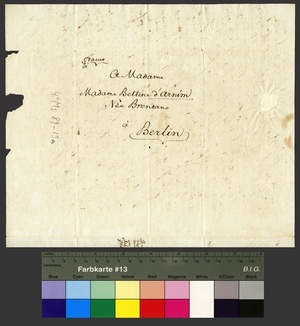 franco
A Madame
Madame Bettine d'Arnim
Née Brentano
à
Berlin
Farbkarte #13
B.I.G.
Blue
Cyan
Green
Yellow
Red
Magenta
White
3/Color
Black